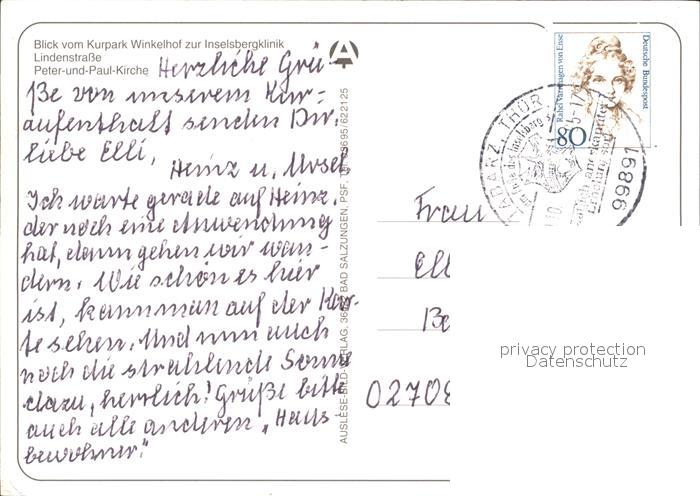 Blick vom Kurpark Winkelhof zur Inselsbergklinik
Lindenstraße
Peter-und-Paul-Kirche
Herzliche Grü-
ße von unserem Kur-
aufenthalt senden Dir,
liebe Elli,
Heinz u. Ursel
Ich warte gerade auf Heinz,
der noch eine Anwendung
hat, dann gehen wir wan-
dern. Wie schön es hier
ist, kann man auf der Kar-
te sehen. Und nun auch
noch die strahlende Sonne
dazu, herrlich! Grüße bitte
auch alle anderen „Haus-
bewohner."
AUSLESE-BILD-VERLAG, BAD SALZUNGEN, PSF. 03695/622125
Rahel Varnhagen von Ense
Deutsche Bundespost
80
TABARZ, THÜR
99891
Frau
Ell
Be
02708
privacy protection
Datenschutz